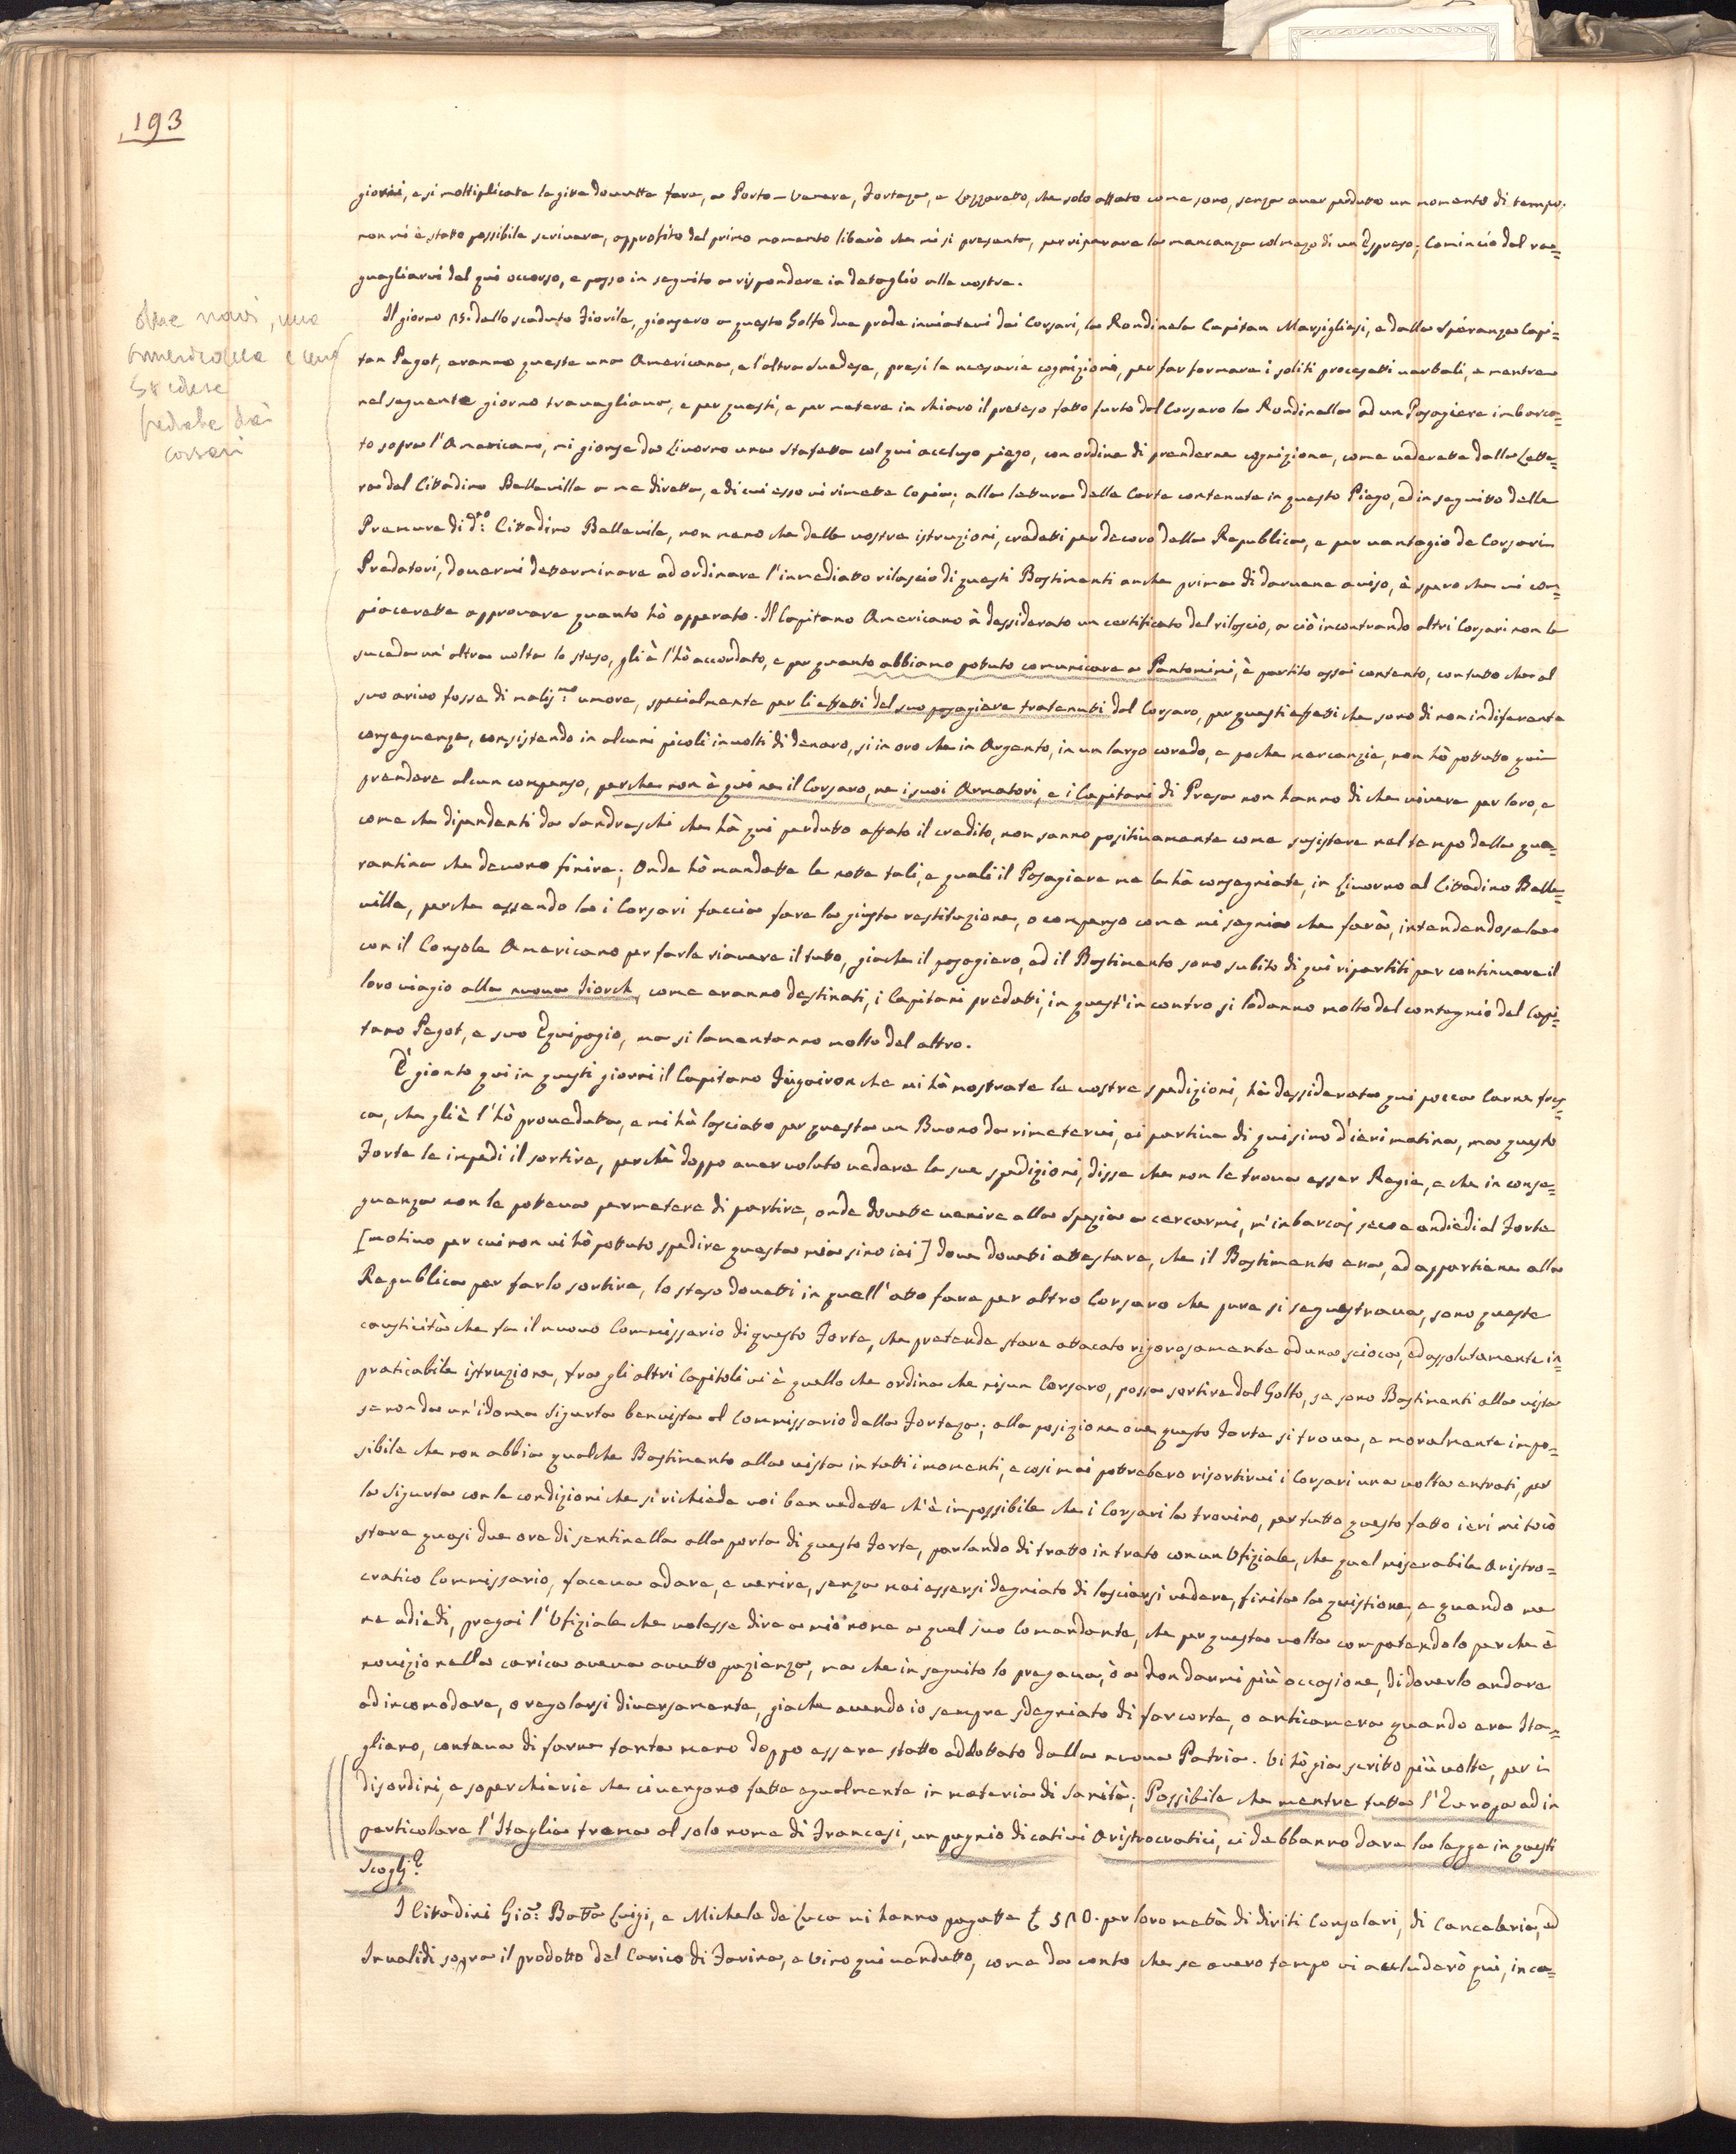 193
giorni, e si moltiplicate le gite dovutte fare, a Porto-Venere, Forteza, e Lazzaretto, che solo affato come sono, senza aver perdutto un momento di tempo,
non mi è statto possibile scrivere, approfito del primo momento liberò che mi si presenta, per riparare la mancanza col mezo di un Espreso; Comincio dal rag=
guagliarvi del qui occorso, e passo in seguito a rispondere in detaglio alle vostre.
due navi, una
americana e una
svedese
predate dai
corsari
Il giorno 15. dello scaduto Fiorile, gionsero a questo Golfo due prede inviatevi dai Corsari, la Rondinela Capitan Marsigliesi, e dalla Speranza Capi=
tan Pagot, eranno queste una Americana, e l'altra Suedese, presi le necesarie cognizioni, per far formare i soliti procesetti verbali, e mentre
nel seguente giorno travagliamo, e per questi, e per metere in chiaro il preteso fatto furto dal Corsaro la Rondinella ad un Pasagiere imbarca=
to sopra l'Americano, mi gionse da Livorno una Stafetta col qui accluso piego, con ordine di prenderne cognizione, come vederette dalla Lette=
ra del Cittadino Belleville a me diretta, e di cui esso vi rimette Copia; alla lettura delle Carte contenute in questo Piego, ed in seguitto delle
Premure di d.to Cittadino Bellevile, non meno che delle vostre istruzioni, credetti per decoro della Republica, e per vantagio de Corsari
Predatori, dovermi determinare ad ordinare l'inmediatto rilascio di questi Bastimenti anche prima di darvene aviso, è spero che mi com=
piacerette approvare quanto hò opperato. Il Capitano Americano à dessiderato un certificato del rilascio, a ciò incontrando altri Corsari non le
suceda un'altra volta lo steso, gli è l'hò accordato, e per quanto abbiamo pottuto comunicare a Pantomini, è partito assai contento, con tutto che al
suo arivo fosse di malis.mo umore, specialmente per li effetti del suo pasagiere tratenutti dal Corsaro, per questi effetti che sono di non indiferente
conseguenza, consistendo in alcuni picoli involti di denaro, si in oro che in Argento, in un largo coredo, e poche mercanzie, non hò pottutto qui
prendere alcun compenso, perche non è qui ne il Corsaro, ne i suoi Armatori, e i Capitani di Presa non hanno di che vivere per loro, e
come che dipendenti da Sandreschi che hà qui perdutto affato il credito, non sanno positivamente come susistere nel tempo della qua=
rantina che devono finire; Onde hò mandatte le notte tali, e quali il Pasagiere me le hà consegniate, in Livorno al Cittadino Belle=
ville, perche essendo la i Corsari faccia fare la giusta restituzione, o compenso come mi segnia che farà, intendendosela
con il Console Americano per farle riavere il tutto, giache il pasagiero, ed il Bastimento sono subito di quì ripartiti per continuare il
loro viagio alla nuova Jiorch, come eranno destinati, i Capitani predatti, in quest'incontro si lodanno molto del contegniò del Capi=
tano Pagot, e suo Equipagio, ma si lamentanno molto del altro.
E' gionto qui in questi giorni il Capitano che mi hà mostrate le vostre spedizioni, hà dessiderata qui pocca Carne fres=
ca, che gli è l'hò proveduta, e mi hà lasciatto per questa un Buono da rimetervi, ei partiva di qui sino d'ieri matina, ma questo
Forte le impedì il sortire, perchè doppo aver voluto vedere le sue spedizioni, disse che non le trova esser Regie, e che in conse=
guenza non le poteva permetere di partire, onde dovette venire alla Spezia a cercarmi, m'inbarcai seco e andiedi al Forte
[motivo per cui non vi hò pottuto spedire questa mia sino ieri] dove dovetti attestare, che il Bastimento era, ed appartiene alla
Republica per farlo sortire, lo steso dovetti in quell'atto fare per altro Corsaro che pure si sequestrava, sono queste
causticità che fa il nuovo Commissario di questo Forte, che pretende stare attacato rigorosamente ad una scioca, ed assolutamente in=
praticabile istruzione, fra gli altri Capitoli vi è quello che ordina che nisun Corsaro, possa sortire dal Golfo, se sono Bastimenti alla vista
se non da un'idonea Sigurta benvista al Commissario della Forteza; alla posizione ove questo Forte si trova, e moralmente inpo=
sibile che non abbia qualche Bastimento alla vista in tutti i momenti, e cosi mai potrebero risortirvi i Corsari una volta entrati, per
la Sigurta con le condizioni che si richiede voi ben vedette ch'è impossibile che i Corsari la trovino, per tutto questo fatto ieri mi tocò
stare quasi due ore di sentinella alla porta di questo Forte, parlando di tratto in trato con un Ufiziale, che quel miserabile Aristro=
cratico Commissario, faceva adare, e venire, senza mai essersi degniato di lasciarsi vedere, finita la quistione, e quando me
ne adiedi, pregai l'Ufiziale che volesse dire a mio nome a quel suo Comandante, che per questa volta compatendolo perche è
novizio nella carica aveva avutto pazienza, ma che in seguito lo pregava, ò a non darmi più occasione, di doverlo andare
ad incomodare, o regolarsi diversamente, giache avendo io sempre sdegniato di far corte, o anticamera quando era Ita=
gliano, contava di farne tanto meno doppo essere statto addottato dalla nuova Patria. Vi hò gia scritto più volte, per i
disordini, e soperchierie che ci vengono fatte egualmente in materia di Sanità; Possibile che mentre tutta l'Europa ed in
particolare l'Itaglia trema al solo nome di Francesi, un pugnio di cativi Aristrocratici, ci debbanno dare la legge in questi
Scogli?
I Cittadini Gio: Batta Luigi, e Michele de Luca mi hanno pagatte £ 510. per loro mettà di diriti Consolari, di Cancelaria, ed
Invalidi sopra il prodotto del Carico di Farina, e Vino qui vendutto, come da conto che se avero tempo vi accluderò quì, in ca=